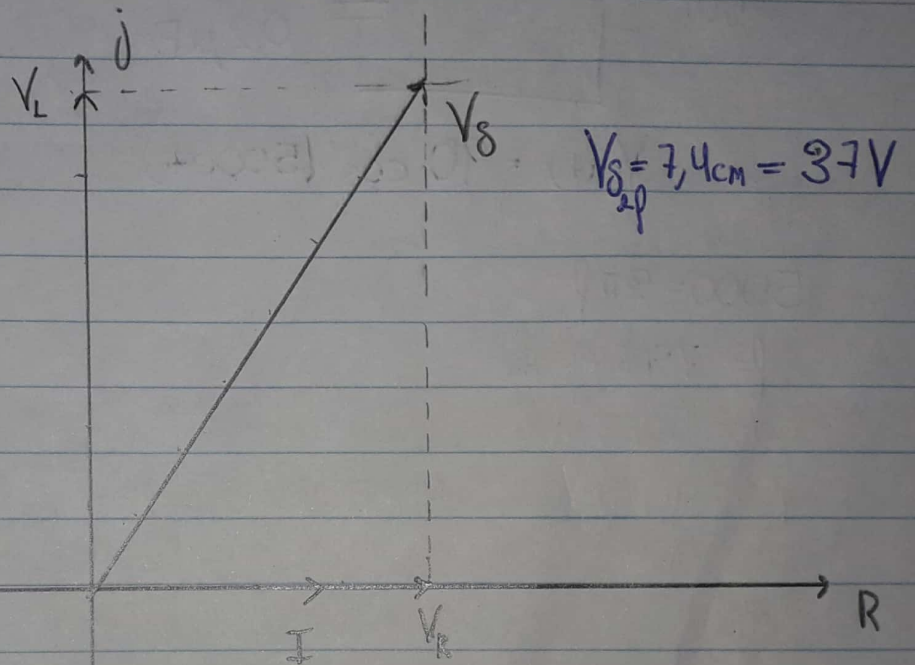 j
V_L
V_S
V_S = 7,4 cm = 37V
I
V_R
R